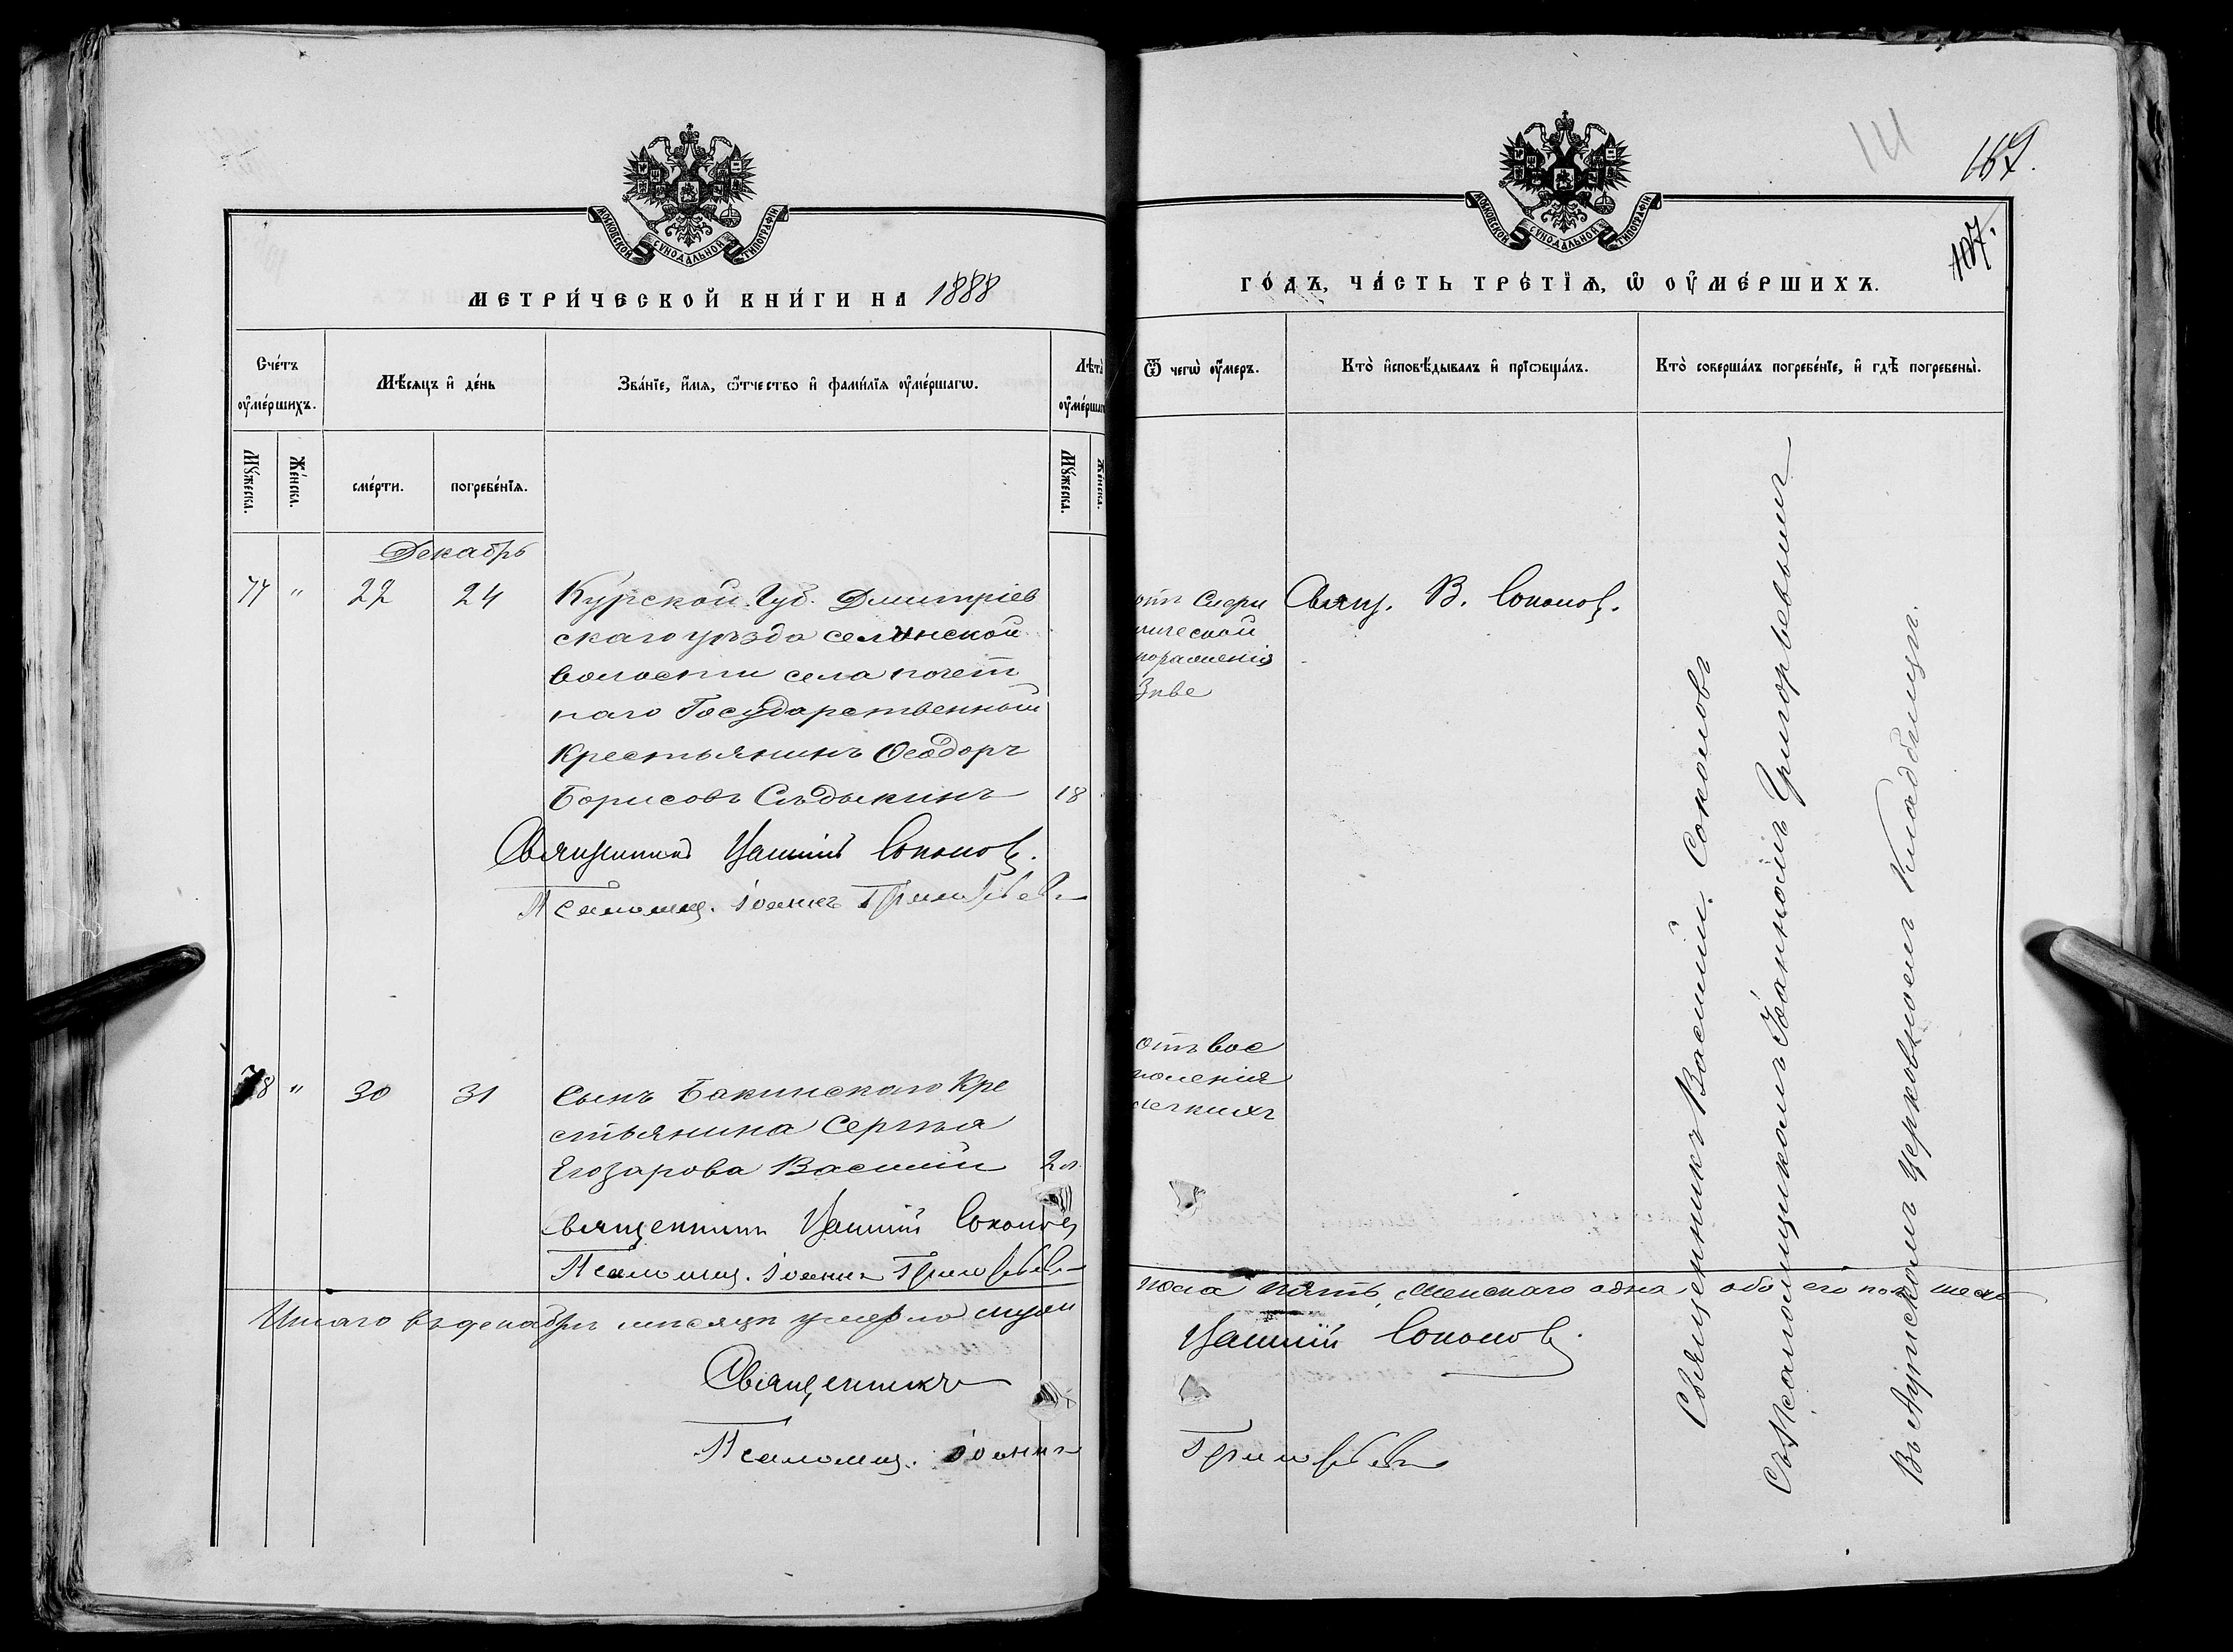 МОСКОВСКОЙ СѴНОДАЛЬНОЙ ТИПОГРАФІИ
МЕТРИ́ЧЕСКОЙ КНИ́ГИ НА 1888
Сче́тъ ᲂу҆ме́ршихъ.
Мѣ́сяцъ и҆ де́нь
Зва́нїе, и҆́мѧ, ѻ҆́тчество и҆ фами́лїѧ ᲂу҆ме́ршагѡ.
Лѣта̀ ᲂу҆ме́ршаг
Мꙋ́жеска.
Же́нска.
сме́рти.
погребе́нїѧ.
Мꙋ́жеска.
Же́нска.
Декабрь
77 " 22 24 Курской Губ. Дмитріев
скаго уѣзда
волости села почет
наго Государственный
Крестьянинъ Ѳеодоръ
Борисовъ Сѣдыкинъ 18
Священникъ Василій Соколовъ.
Псаломщ. Іоаннъ Григорьевъ
78 " 30 31 Сынъ Бакинскаго Кре
стьянина Сергѣя
Егозарова Василій 2 л.
Священникъ Василій Соколовъ
Псаломщ. Іоаннъ Григорьевъ
Итаго въ декабрѣ мѣсяцѣ умерло муж
Священникъ
Псаломщ. Іоаннъ
111
167.
107.
МОСКОВСКОЙ СѴНОДАЛЬНОЙ ТИПОГРАФІИ
ГО́ДЪ, ЧА́СТЬ ТРЕ́ТЇѦ, Ѡ҆ ОУ҆МЕ́РШИХЪ.
Ѿ чегѡ̀ ᲂу҆́меръ.
Кто̀ и҆сповѣ́дывалъ и҆ прїѻбща́лъ.
Кто̀ соверша́лъ погребе́нїе, и҆ гдѣ̀ погребены̀.
Свящ. В. Соколовъ.
отъ вос
паленія
легкихъ
Священникъ Василій Соколовъ
съ Псаломщикомъ Іоанномъ Григорьевымъ
Въ церковномъ Кладбищѣ.
пола пять, Женскаго одна, обоего пол шесть
Василій Соколовъ.
Григорьевъ